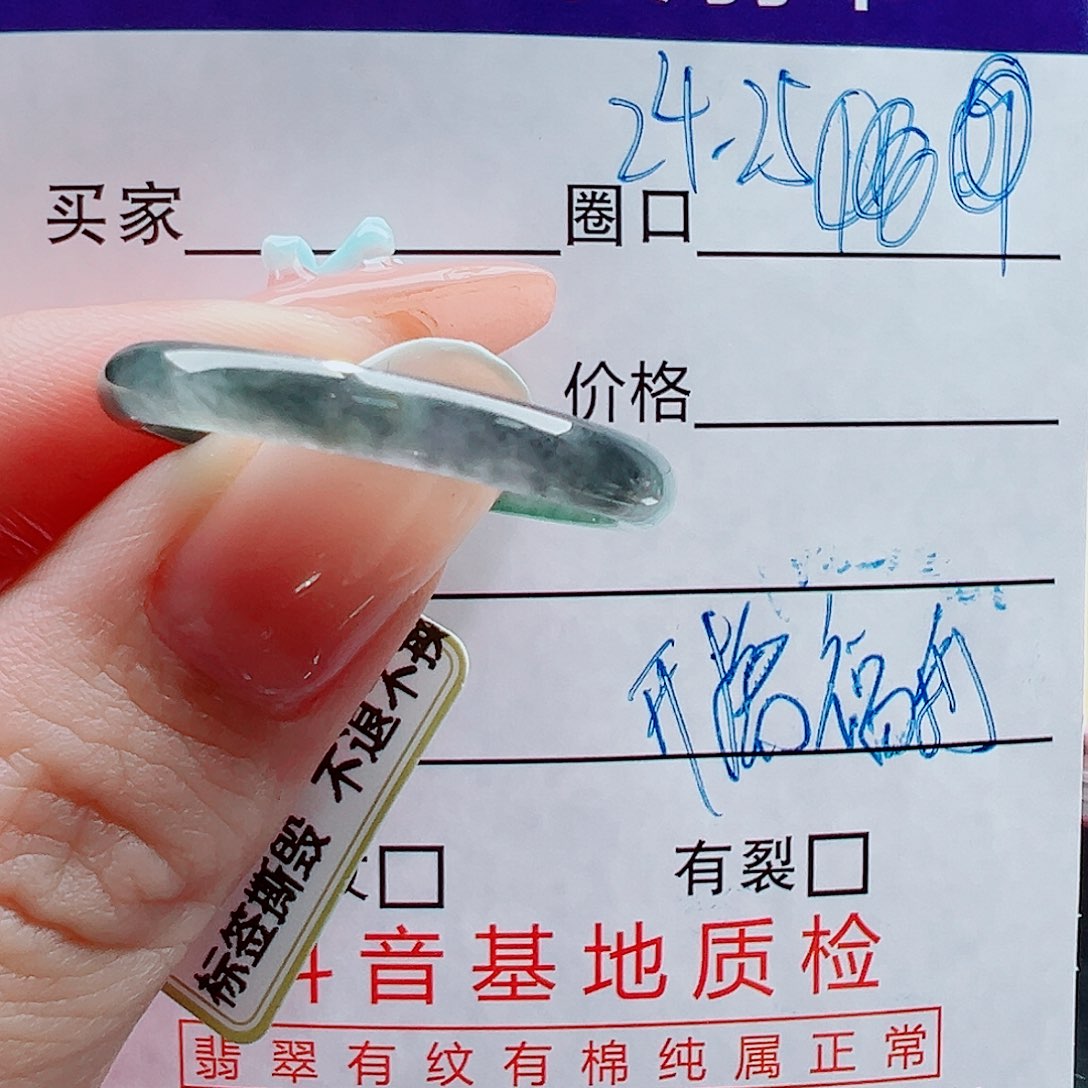 24-25
买家 圈口
价格
开播福利
有裂
标签撕毁 不退不换
抖音基地质检
翡翠有纹有棉纯属正常